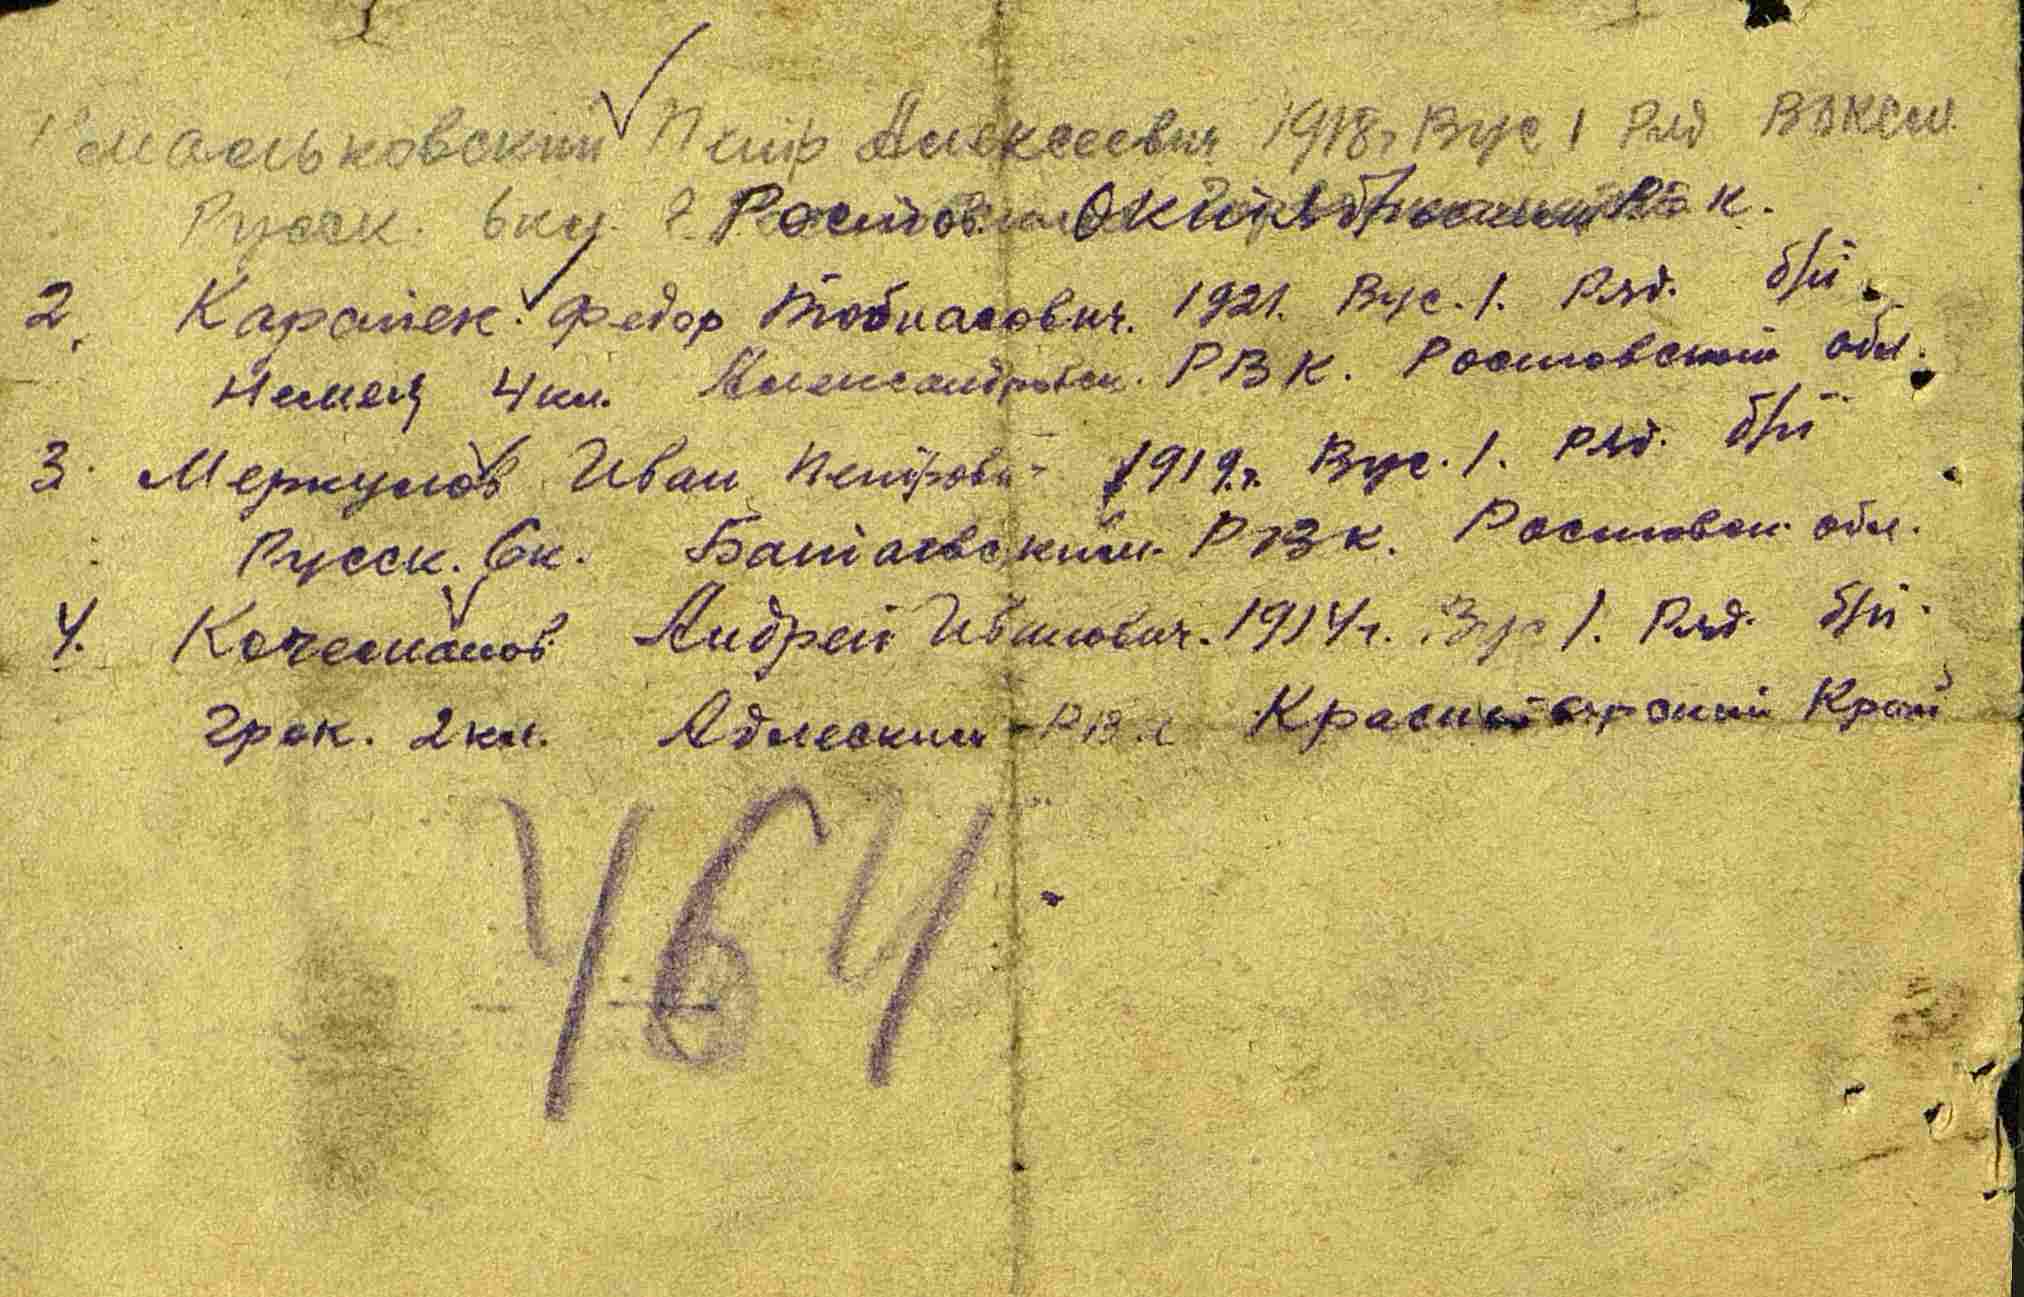 1. Мальковский Петр Алексеевич 1918г Вус 1 Ряд ВЛКСМ
Русск. 6кл. г. Ростов Октябрьский к.
2. Федор 1921. Вус. 1. Ряд. б/п
Немец 4кл. Александровск. РВК. Ростовский обл.
3. Меркулов Иван Петрович 1919г. Вус. 1. Ряд. б/п
Русск. 6к. Батаевский РВК. Ростовск. обл.
4. Андрей Иванович. 1914г. Вус 1. Ряд. б/п
Грек. 2кл. РВК Краснодарский Край
464